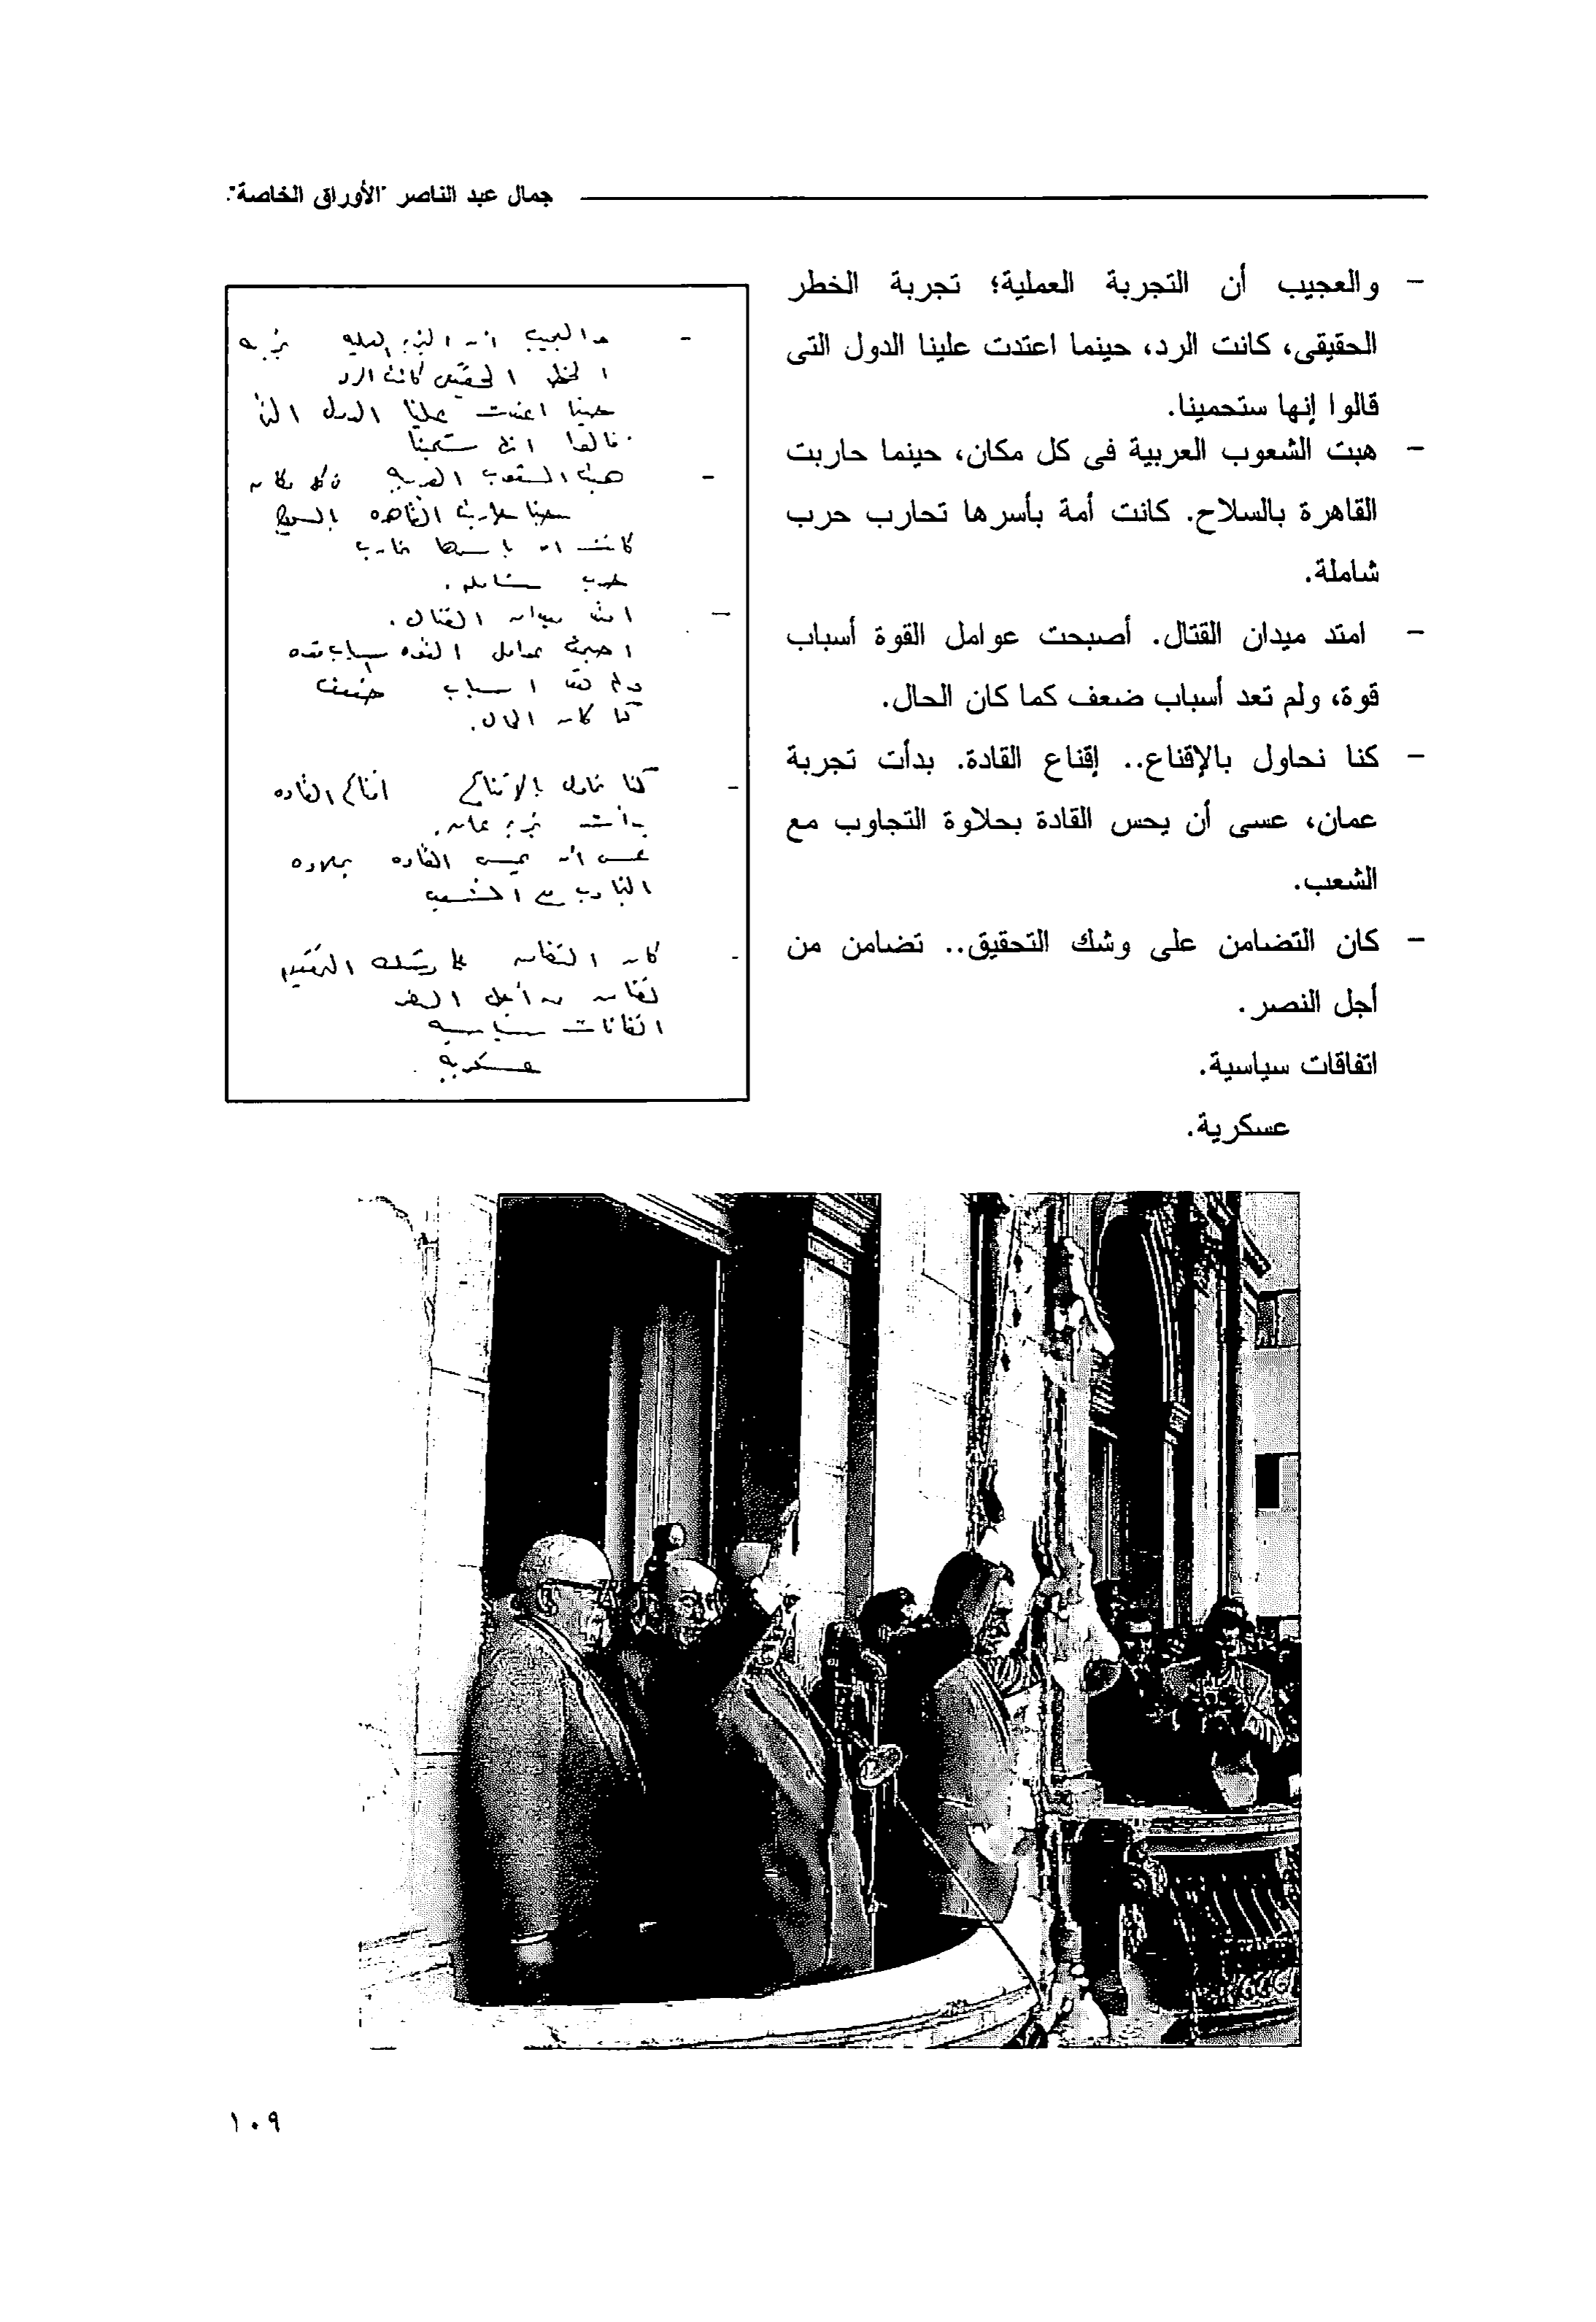 جمال عبد الناصر "الأوراق الخاصة".
- والعجيب أن التجربة العملية؛ تجربة الخطر
الحقيقى، كانت الرد، حينما اعتدت علينا الدول التى
قالوا إنها ستحمينا.
- هبت الشعوب العربية فى كل مكان، حينما حاربت
القاهرة بالسلاح. كانت أمة بأسرها تحارب حرب
شاملة.
- امتد ميدان القتال. أصبحت عوامل القوة أسباب
قوة، ولم تعد أسباب ضعف كما كان الحال.
- كنا نحاول بالإقناع.. إقناع القادة. بدأت تجربة
عمان، عسى أن يحس القادة بحلاوة التجاوب مع
الشعب.
- كان التضامن على وشك التحقيق.. تضامن من
أجل النصر.
اتفاقات سياسية.
عسكرية.
- والعجيب ان التجربه العمليه تجربه
الخطر الحقيقى كانت الرد
حينما اعتدت علينا الدول التى
قالوا انها ستحمينا
- هبت الشعوب العربيه فى كل مكان
حينما حاربت القاهره بالسلاح
كانت امه باسرها تحارب
حرب شامله.
- امتد ميدان القتال.
اصبحت عوامل القوه اسباب قوه
ولم تعد اسباب ضعف
كما كان الحال.
- كنا نحاول بالاقناع اقناع القاده
بدأت تجربه عمان.
عسى أن يحس القاده بحلاوه
التجاوب مع الشعب
- كان التضامن على وشك التحقيق
تضامن من أجل النصر
اتفاقات سياسيه
عسكريه.
١٠٩